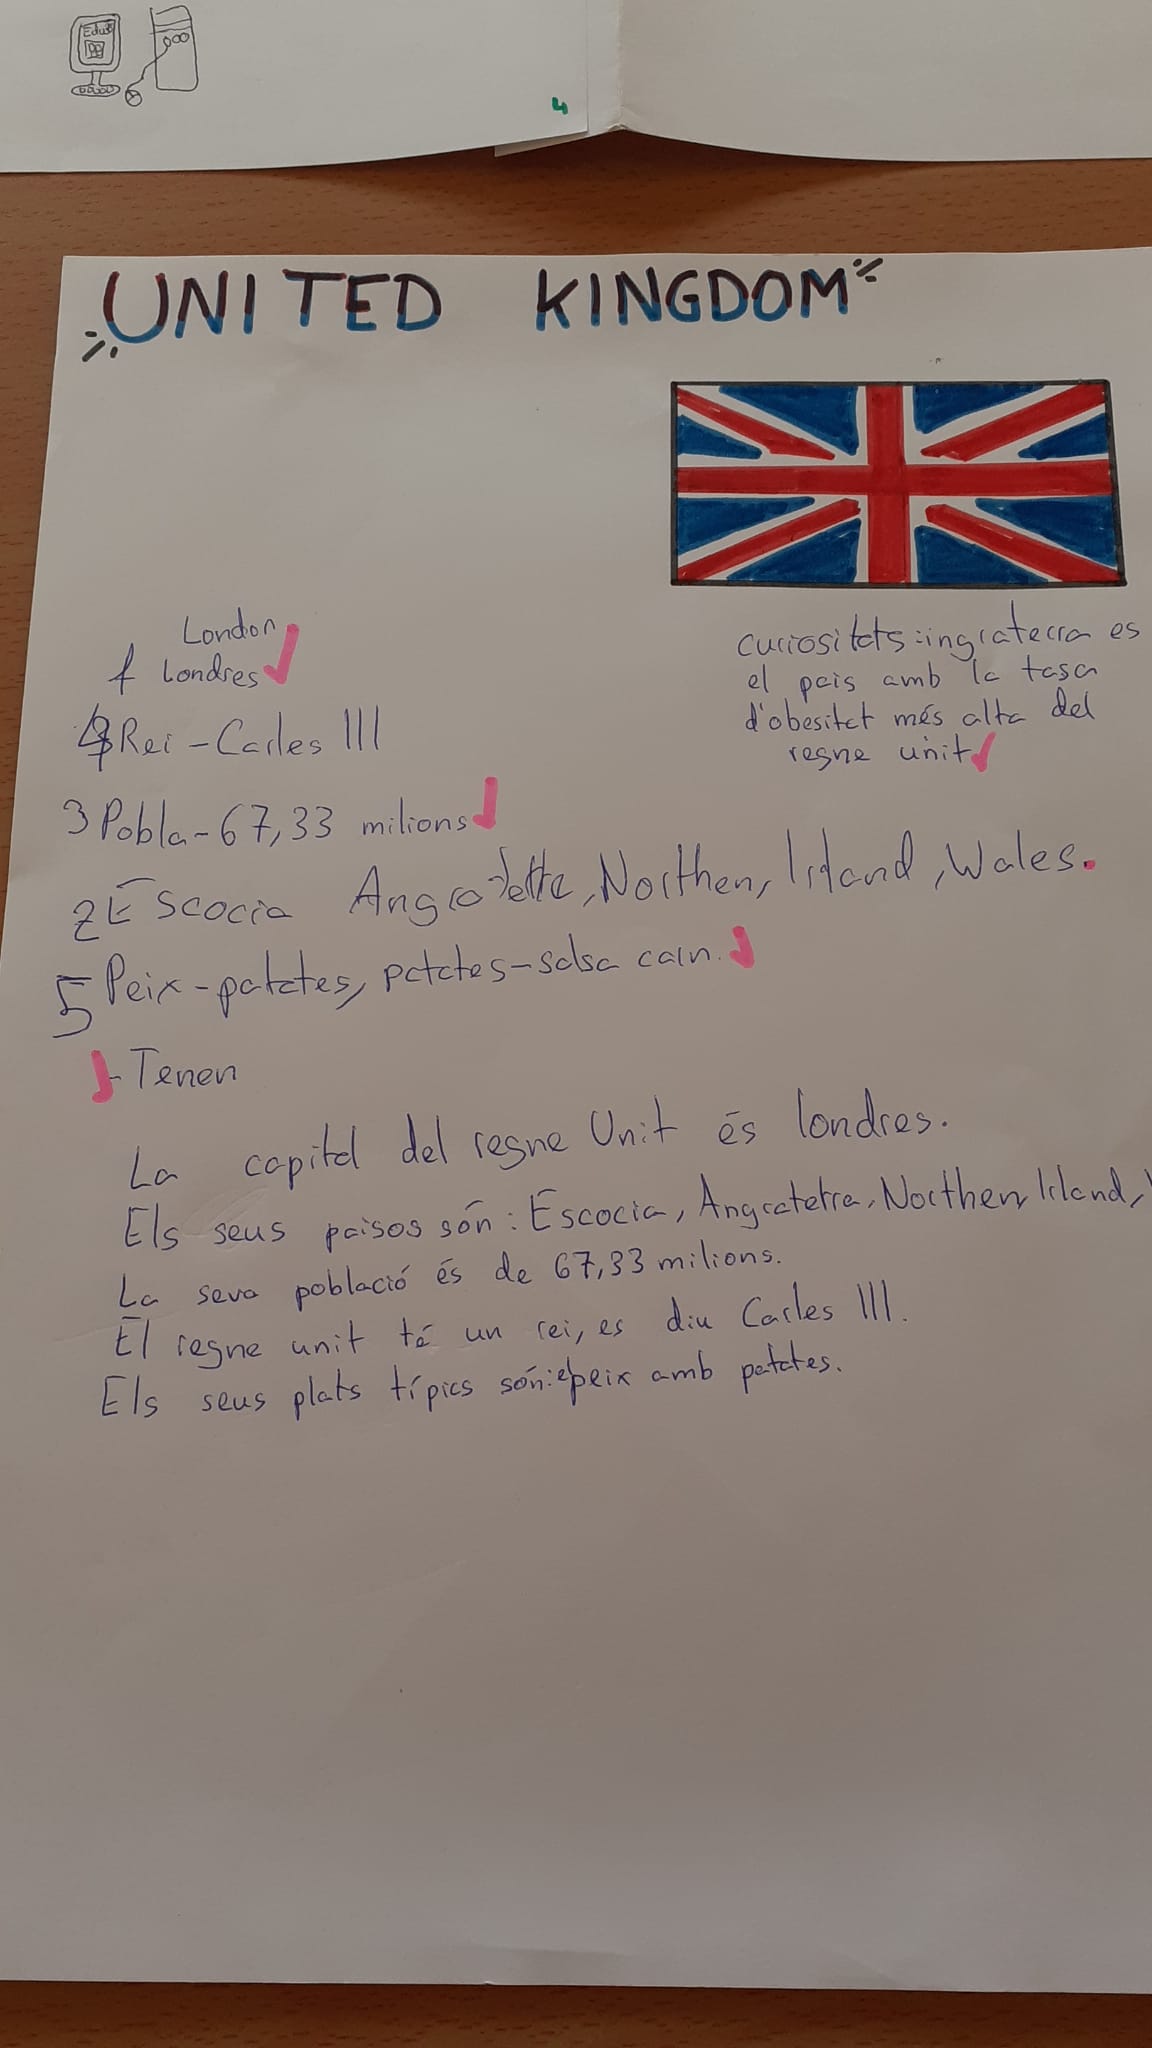 Edu
4
UNITED KINGDOM
London
1 Londres
4 Rei - Carles III
3 Pobla - 67,33 milions
2 Escocia Angratette, Northen, Irland, Wales.
5 Peix - patates, patates - salsa carn.
- Tenen
curiositats: ingraterra es
el pais amb la tasa
d'obesitat més alta del
regne unit
La capital del regne Unit és londres.
Els seus paisos són: Escocia, Angratetra, Northen Irland,
La seva població és de 67,33 milions.
El regne unit té un rei, es diu Carles III.
Els seus plats típics són: peix amb patates.